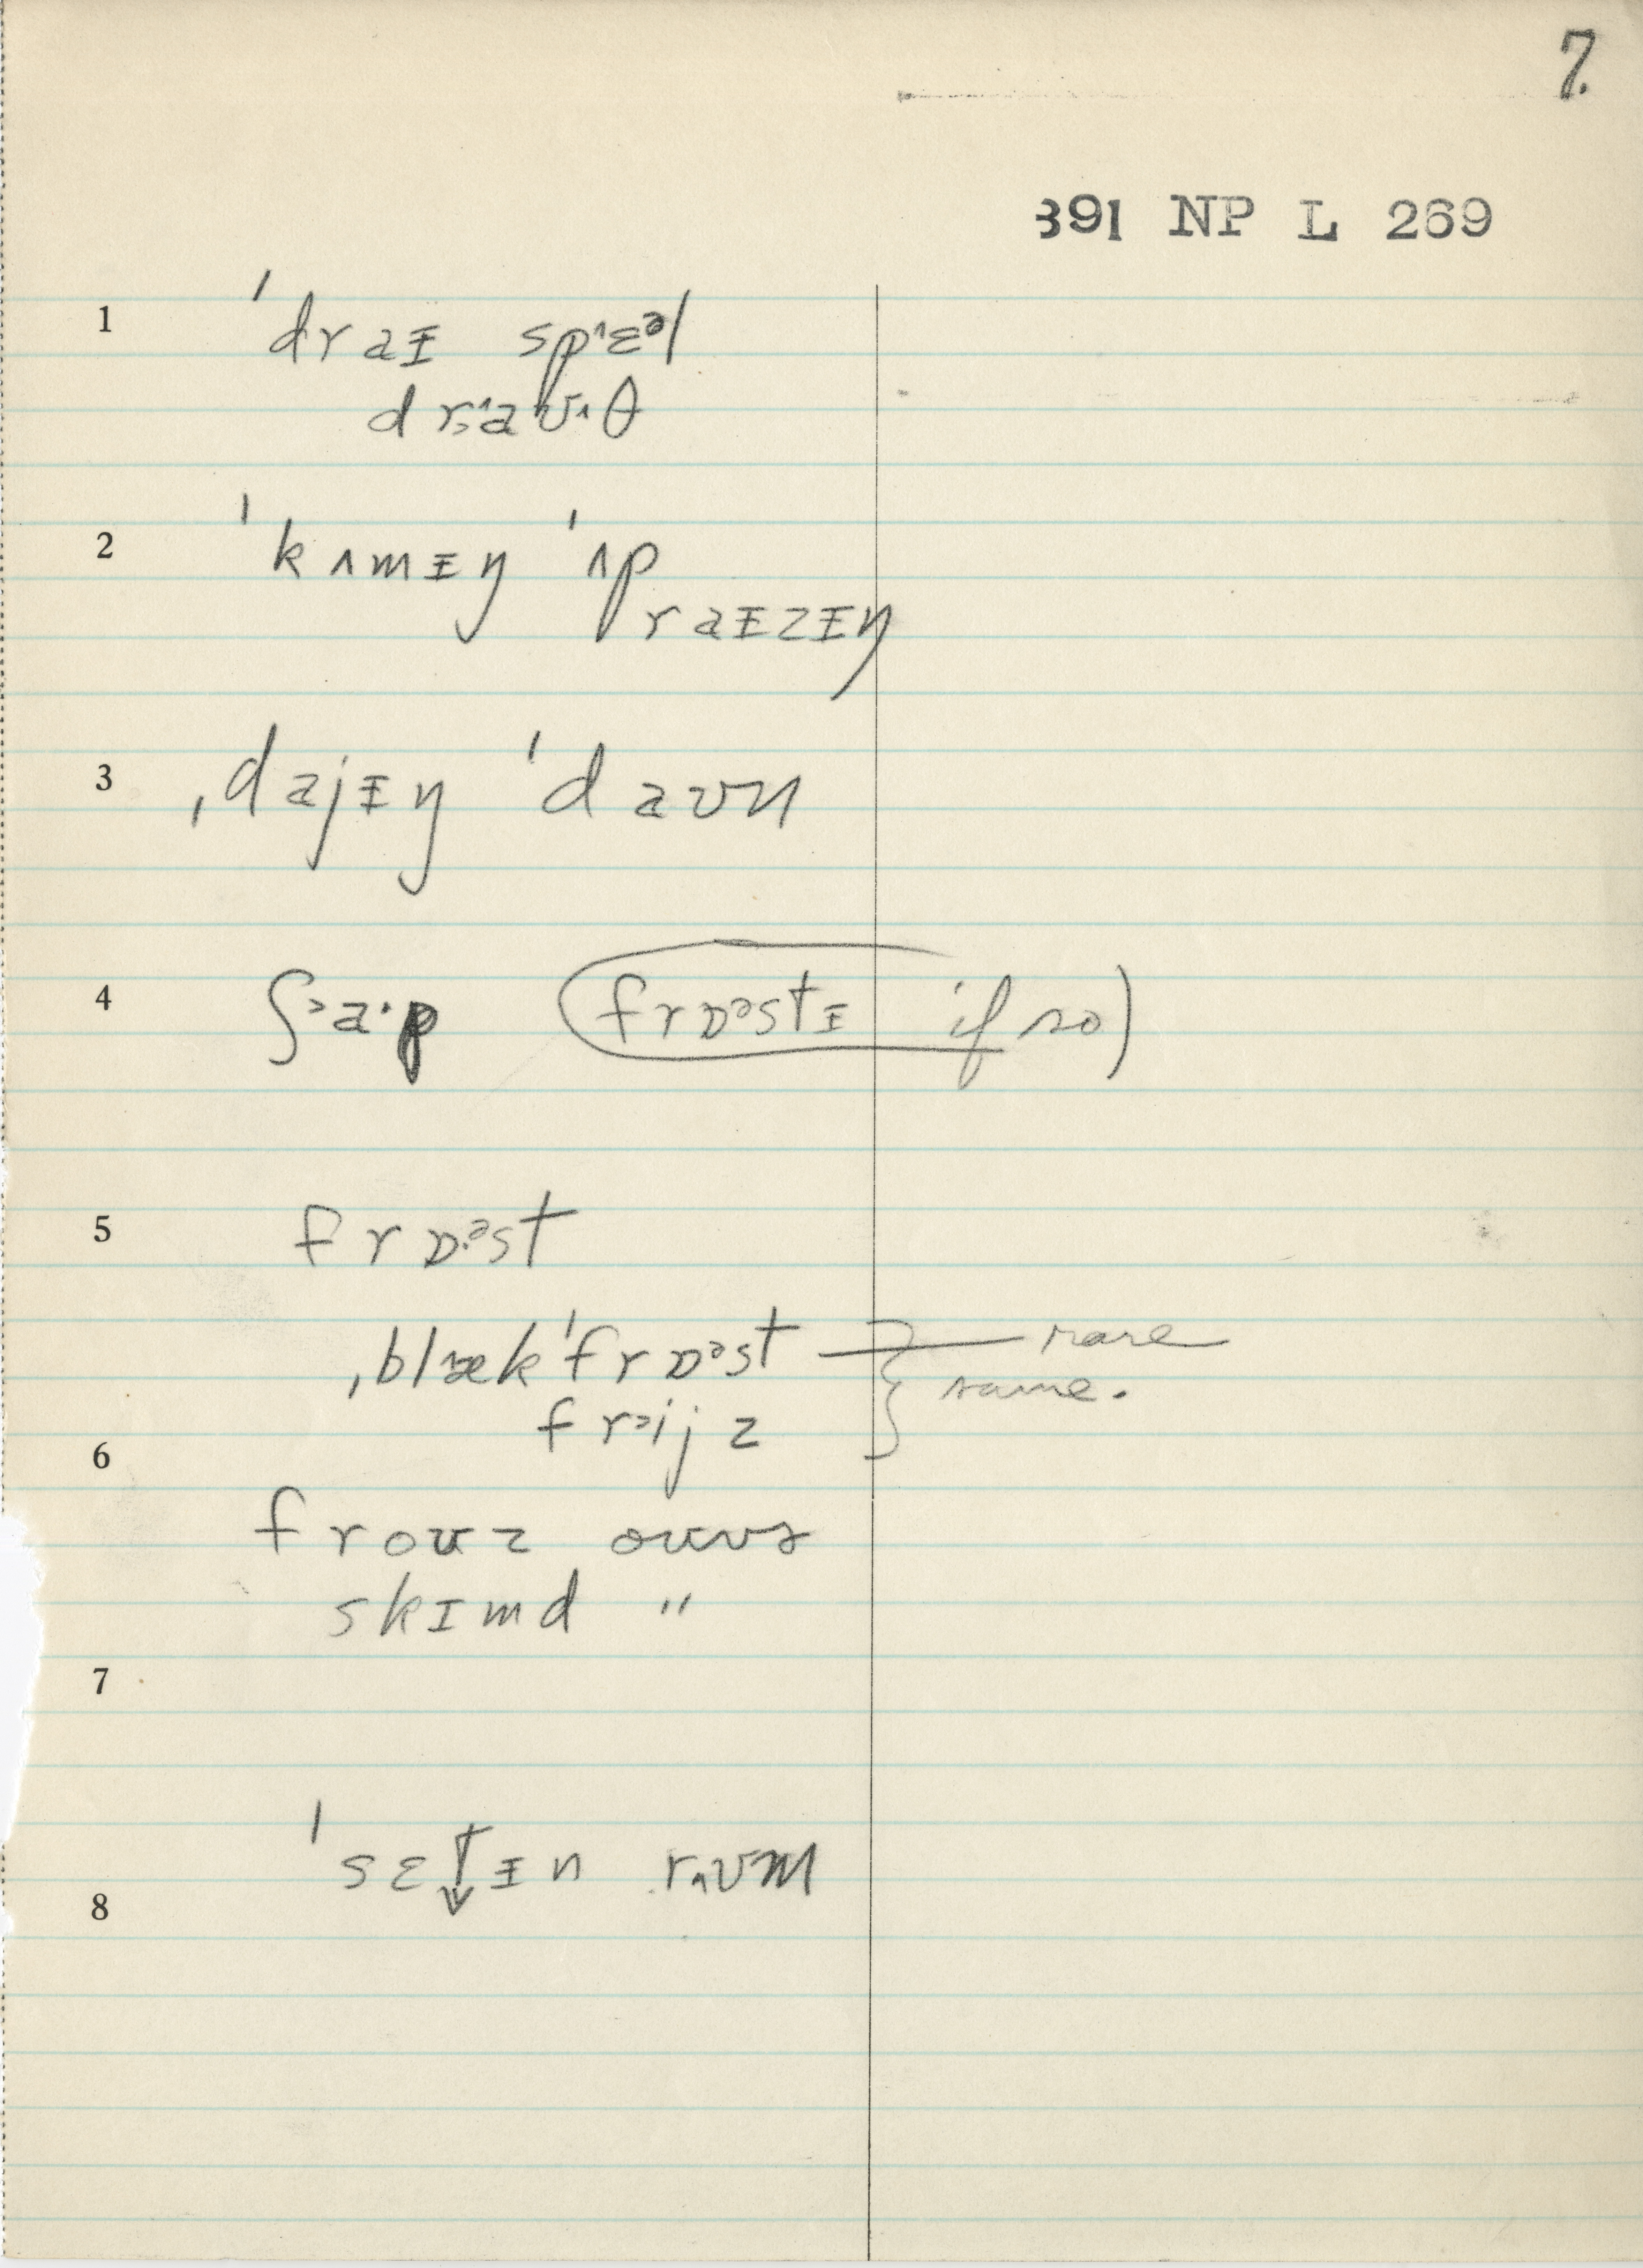 7.
391 NP L 269
1 ˈdraɪ sp˄ɛᵊl
dr˃˄aʊ˄θ
2 ˈkʌmɪŋ ˈʌp
raɪzɪŋ
3 ˌdajɪŋ ˈdaʊn
4 ʃ˃a·p (frɒᵊstɪ if so)
5 frɒ·ᵊst
ˌblæk ˈfrɒᵊst rare
fr˃ijz same.
6
froʊz oʊvɚ
skɪmd "
7
ˈsɛt̬ɪn rʌʊm
8